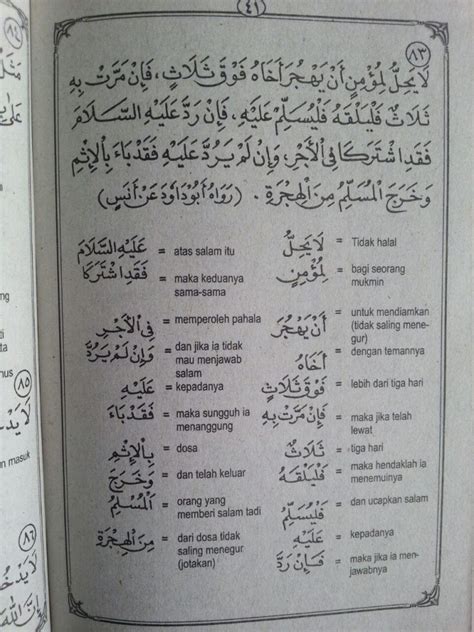 ٤١
٨٣
لَا يَحِلُّ لِمُؤْمِنٍ أَنْ يَهْجُرَ أَخَاهُ فَوْقَ ثَلَاثٍ، فَإِنْ مَرَّتْ بِهِ
ثَلَاثٌ فَلْيَلْقَهُ فَلْيُسَلِّمْ عَلَيْهِ، فَإِنْ رَدَّ عَلَيْهِ السَّلَامَ
فَقَدِ اشْتَرَكَا فِي الْأَجْرِ، وَإِنْ لَمْ يَرُدَّ عَلَيْهِ فَقَدْ بَاءَ بِالْإِثْمِ
وَخَرَجَ الْمُسَلِّمُ مِنَ الْهِجْرَةِ. (رَوَاهُ أَبُو دَاوُدَ عَنْ أَنَسٍ)
لَا يَحِلُّ = Tidak halal
لِمُؤْمِنٍ = bagi seorang
mukmin
أَنْ يَهْجُرَ = untuk mendiamkan
(tidak saling mene-
gur)
أَخَاهُ = dengan temannya
فَوْقَ ثَلَاثٍ = lebih dari tiga hari
فَإِنْ مَرَّتْ بِهِ = maka jika telah
lewat
ثَلَاثٌ = tiga hari
فَلْيَلْقَهُ = maka hendaklah ia
menemuinya
فَلْيُسَلِّمْ = dan ucapkan salam
عَلَيْهِ = kepadanya
فَإِنْ رَدَّ = maka jika ia men-
jawabnya
عَلَيْهِ السَّلَامَ = atas salam itu
فَقَدِ اشْتَرَكَا = maka keduanya
sama-sama
فِي الْأَجْرِ = memperoleh pahala
وَإِنْ لَمْ يَرُدَّ = dan jika ia tidak
mau menjawab
salam
عَلَيْهِ = kepadanya
فَقَدْ بَاءَ = maka sungguh ia
menanggung
بِالْإِثْمِ = dosa
وَخَرَجَ = dan telah keluar
الْمُسَلِّمُ = orang yang
memberi salam tadi
مِنَ الْهِجْرَةِ = dari dosa tidak
saling menegur
(jotakan)
٨٤
٨٥
n masuk
٨٦